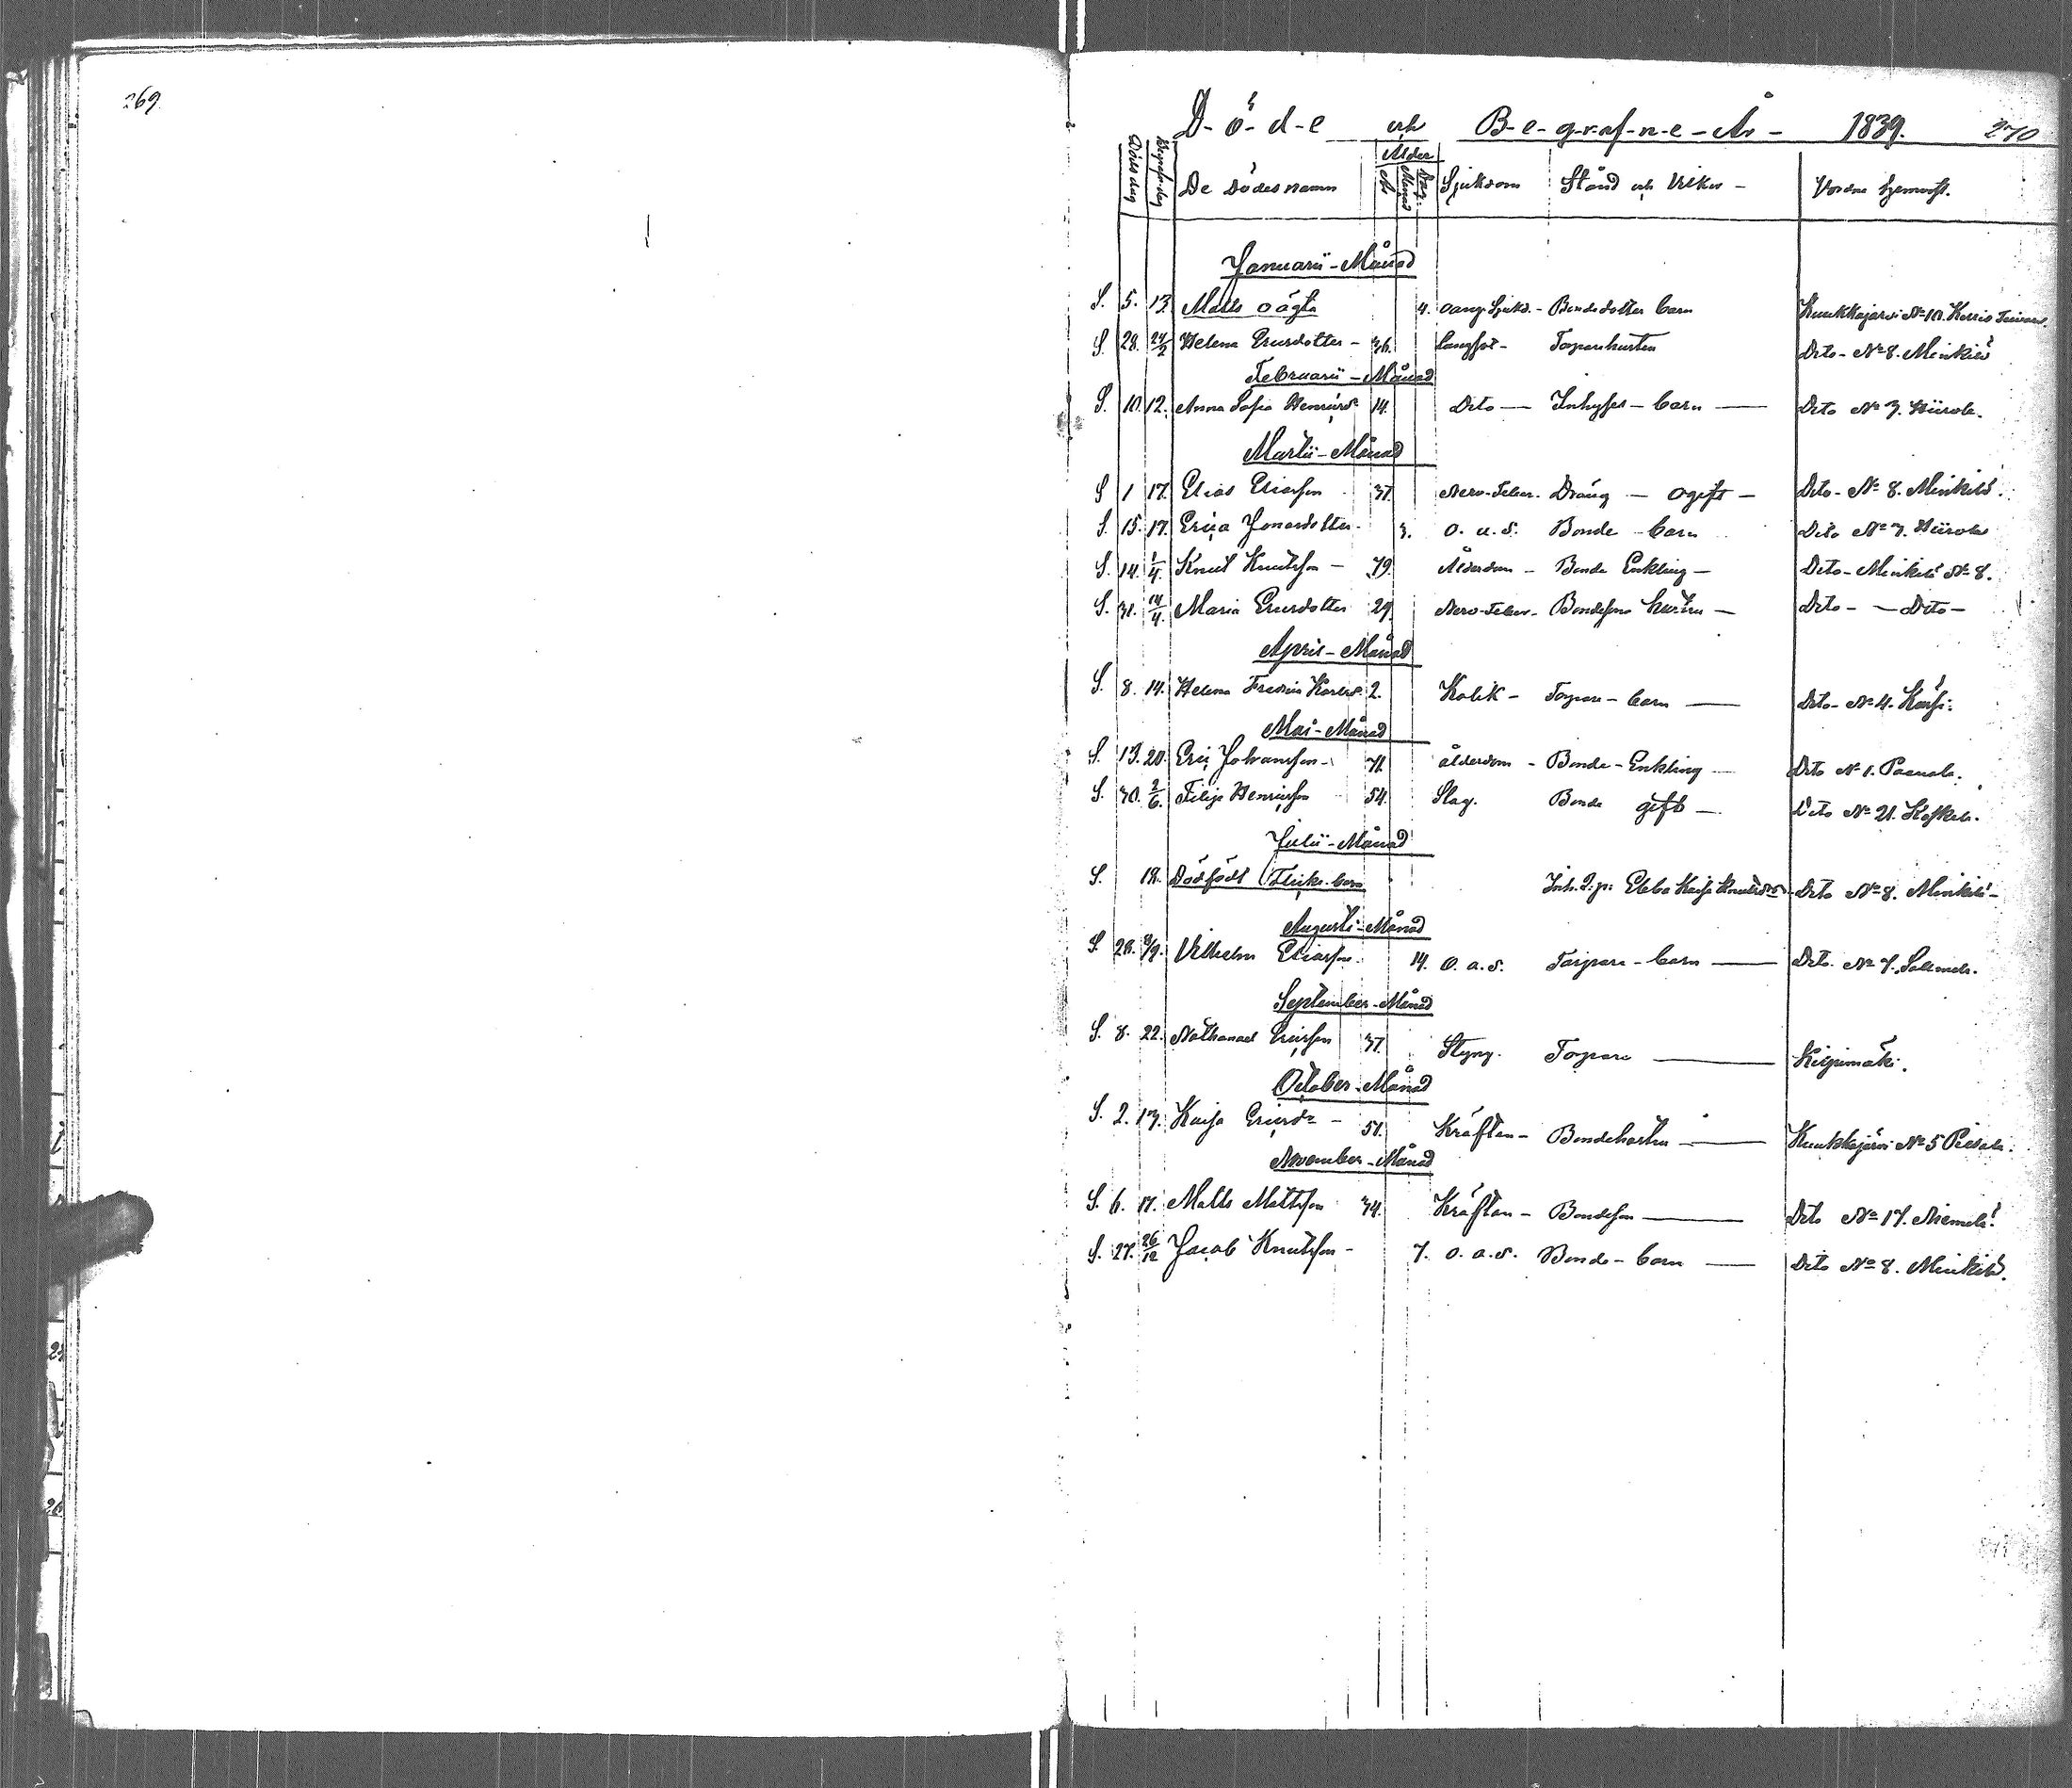 269
D-ö-d-e och B-e-g-r-af-n-e - År - 1839. 270
Döds dag Begrafn. dag De Dödes namn Ålder År Månad Dag Sjukdom Stånd och Vilkor -
Januarii - Månad
S. 5. 13. Matts oägta 4. oang. Sjukd. - Bonde dotter barn Kuukkajärvi No 10.
S. 28. 24/2 Helena Ericsdotter - 36. Lungsot - Torpare hustru Dito - No 8. Minkilä
Februarii - Månad
S. 10. 12. Anna Sofia Henricsdr 14. Dito — Inhyses - barn — Dito No 7. Hiirola.
Martii - Månad
S 1 17. Elias Eliasson 37. Nerv-Feber. Dräng — ogift — Dito - No 8. Minkilä.
S. 15. 17. Erica Jonasdotter - 3. o. u. s. Bonde barn Dito No 7. Hiirola
S. 14. 1/4. Knut Knutsson - 79. Ålderdom - Bonde Enkling - Dito - Minkilä No 8.
S. 31. 14/4. Maria Ericsdotter 29. Nerv-Feber - Bondesons hustru — Dito - — Dito -
April - Månad
S. 8. 14. Helena Karlsd. 2. Kolik - Torpare - barn — Dito - No 4.
Mai - Månad
S. 13. 20. Eric Johansson - 71. ålderdom - Bonde - Enkling — Dito No 1.
S. 30. 2/6. Filip Henricsson 54. Slag. Bonde gift — Dito No 21. Koskela.
Julii - Månad
S. 18. Dödfödt Flicke-barn Inh. Q.p. Ebba Kaisa Dito No 8. Minkilä -
Augusti - Månad
S. 28. 8/9. Vilhelm Eliasson. 14. o. a. s. Torpare - barn — Dito. No 7.
September - Månad
S. 8. 22. Nathanael Ericsson 37. Styng. Torpare — Kilpimäki.
October - Månad
S. 2. 13. Kaisa Ericsdr - 51. Kräftan - Bondehustru — Kuukkajärvi No 5
November - Månad
S. 6. 17. Matts Mattsson 34. Kräftan - Bondeson — Dito No 17. Niemelä.
S. 27. 26/12 Jacob Knutsson - 7. o. a. s. Bonde - barn — Dito No 8. Minkilä.